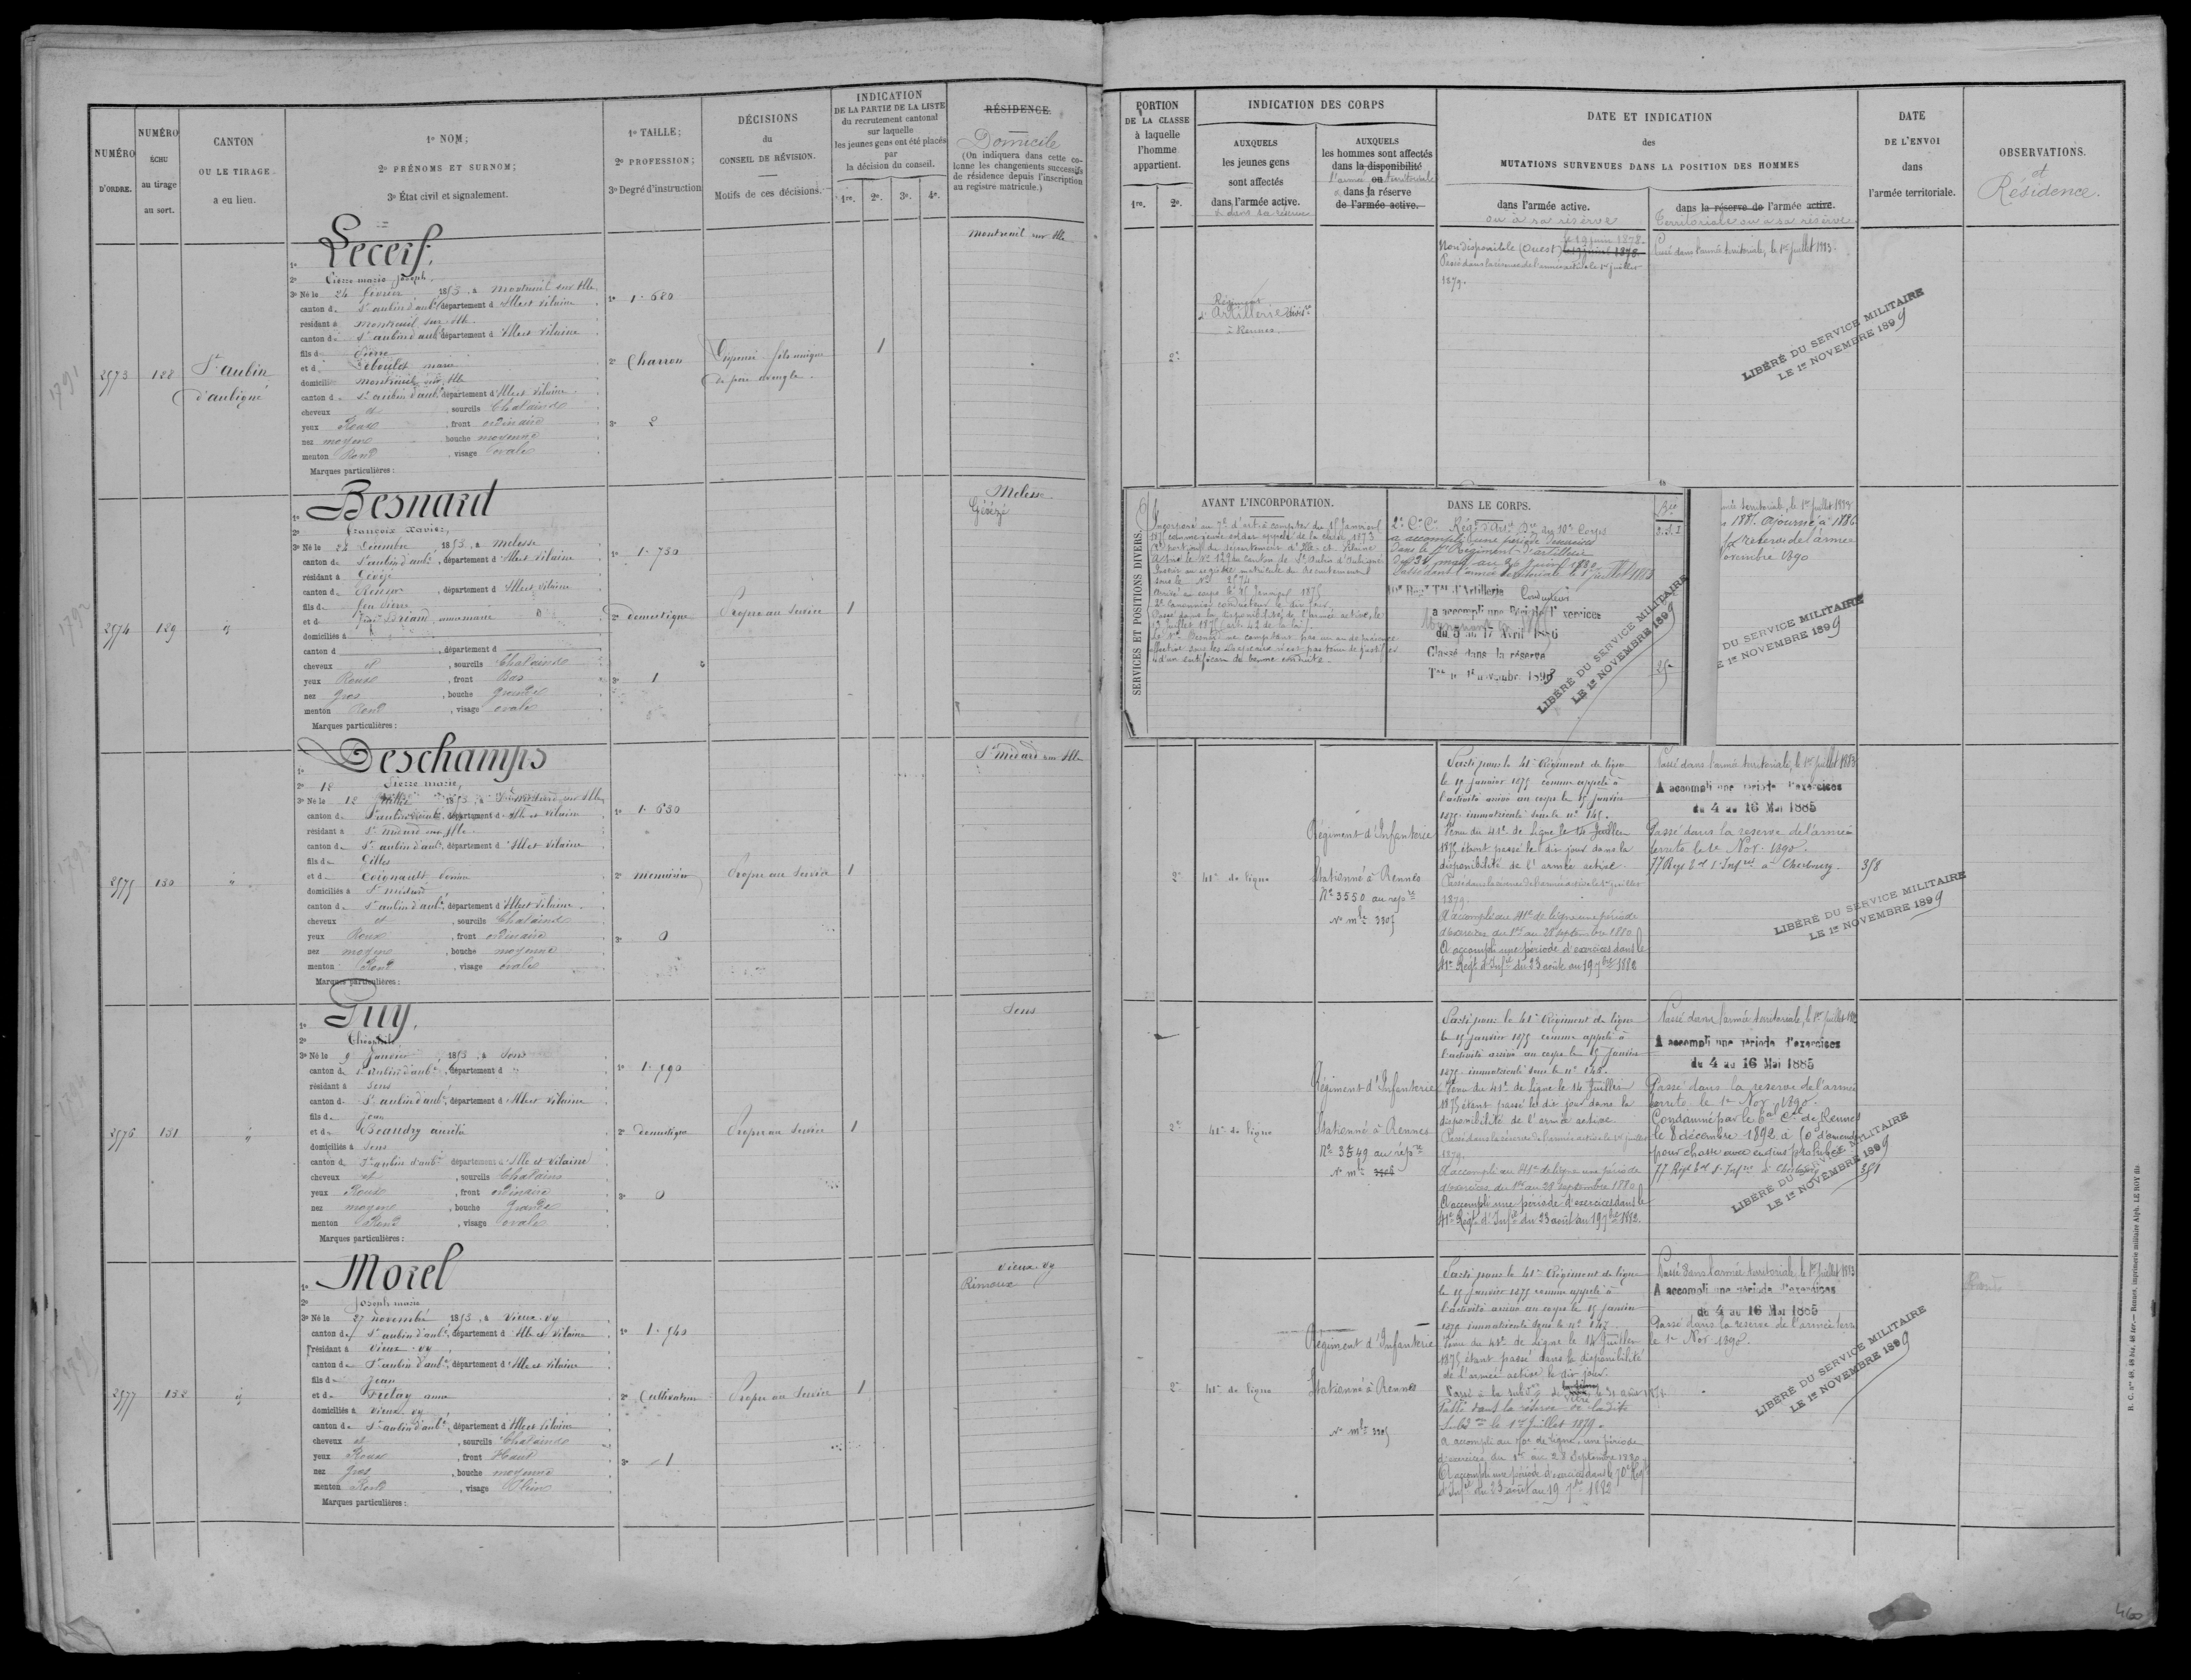 NUMÉRO
D'ORDRE.
NUMÉRO
ÉCHU
au tirage
au sort.
CANTON
OU LE TIRAGE
a eu lieu.
1º NOM;
2º PRÉNOMS ET SURNOM;
3º État civil et signalement.
1º TAILLE;
2º PROFESSION;
3º Degré d'instruction
DÉCISIONS
du
CONSEIL DE RÉVISION.
Motifs de ces décisions.
INDICATION
DE LA PARTIE DE LA LISTE
du recrutement cantonal
sur laquelle
les jeunes gens ont été placés
par
la décision du conseil.
1re. 2e. 3e. 4e.
RÉSIDENCE.
Domicile
(On indiquera dans cette co-
lonne les changements successifs
de résidence depuis l'inscription
au registre matricule.)
1791
2573 128 St Aubin
d'aubigné
1º Lecerf,
2º Pierre marie Joseph,
3º Né le 24 février 1853, à Montreuil sur Ille
canton de St aubin d'aubé, département d'Ille et Vilaine
résidant à Montreuil sur Ille
canton de St aubin d'aubé, département d'Ille et Vilaine
fils de Pierre
et d
domiciliés Montreuil sur Ille
canton de St aubin d'aubé, département d'Ille et Vilaine
cheveux et , sourcils Chatains
yeux Roux , front ordinaire
nez moyen bouche moyenne
menton Rond , visage ovale
Marques particulières :
1º 1.680
2º Charron
3º 2
Dispensé fils unique
de père aveugle.
1
Montreuil sur Ille
1792
2574 129 id
1º Besnard
2º François Xavier,
3º Né le 22 Décembre, 1853, à Melesse
canton de St aubin d'aubé, département d'Ille et Vilaine
résidant à Gévezé
canton de , département d'Ille et Vilaine
fils de feu Pierre
et d
domiciliés à
canton d , département d
cheveux et , sourcils Chatains
yeux Roux , front Bas
nez gros , bouche grande
menton Rond , visage ovale
Marques particulières :
1º 1.750
2º domestique
3º 1
Propre au Service 1
Melesse
Gévezé
1793
2575 130 "
1º Deschamps
2º Pierre marie,
3º Né le 12 1853, à St Médard sur Ille
canton de St aubin d'aubé, département d'Ille et Vilaine
résidant à St Médard sur Ille
canton de St aubin d'aubé, département d'Ille et Vilaine
fils de Gilles
et d Coignault
domiciliés à St Médard
canton d St aubin d'aubé, département d'Ille et Vilaine
cheveux et , sourcils Chatains
yeux Roux , front ordinaire
nez moyen , bouche moyenne
menton Rond , visage ovale
Marques particulières :
1º 1.630
2º menuisier
3º 0
Propre au Service 1
St Médard sur Ille
1794
2576 131 "
1º Guy,
2º Théophile
3º Né le 9 Janvier, 1853, à Sens
canton de St aubin d'aubé, département d "
résidant à Sens
canton d St aubin d'aubé, département d'Ille et Vilaine
fils d Jean
et d Beaudry
domiciliés à Sens
canton d St aubin d'aubé département d'Ille et Vilaine
cheveux et , sourcils Chatains
yeux Roux , front ordinaire
nez moyen , bouche grande
menton Rond , visage ovale
Marques particulières :
1º 1.590
2º domestique
3º 0
Propre au Service 1
Sens
2577 132 id
1º Morel
2º Joseph marie
3º Né le 27 novembre 1853, à Vieux-Vy
canton d St aubin d'aubé, département d'Ille et Vilaine
résidant à Vieux-Vy
canton de St aubin d'aubé, département d'Ille et Vilaine
fils d Jean
et d Fretay anne
domiciliés à Vieux Vy
canton de St aubin d'aubé, département d'Ille et Vilaine
cheveux et , sourcils Chatains
yeux Roux , front Haut
nez gros , bouche moyenne
menton Rond , visage Plein
Marques particulières :
1º 1.540
2º Cultivateur
3º 1
Propre au Service 1
Vieux-Vy
Rimoux
PORTION
DE LA CLASSE
à laquelle
l'homme
appartient.
1re. 2e.
INDICATION DES CORPS
AUXQUELS
les jeunes gens
sont affectés
dans l'armée active.
et dans sa réserve
AUXQUELS
les hommes sont affectés
dans la disponibilité
l'armée ou territoriale
dans la réserve
de l'armée active.
DATE ET INDICATION
des
MUTATIONS SURVENUES DANS LA POSITION DES HOMMES
dans l'armée active.
ou à sa réserve
dans la réserve de l'armée active.
Territoriale ou à sa réserve
DATE
DE L'ENVOI
dans
l'armée territoriale.
OBSERVATIONS.
et
Résidence.
2e
Régiment
d'Artillerie
à Rennes
le 19 juin 1878
Non disponible (Ouest)
Passé dans la réserve de l'armée active le 1er juillet
1879.
Passé dans l'armée territoriale, le 1er juillet 1883.
LIBÉRÉ DU SERVICE MILITAIRE
LE 1er NOVEMBRE 1899
SERVICES ET POSITIONS DIVERS.
AVANT L'INCORPORATION.
Incorporé au 7e d'artie à compter du 15 Janvier
1875 comme jeune soldat appelé de la classe 1873
(2e portion) du département d'Ille et Vilaine
A tiré le No 129 du Canton de St Aubin d'Aubigné
Inscrit au registre matricule du Recrutement
sous le No 2574
Arrivé au corps le 15 Janvier 1875
2e Canonnier conducteur le dit jour
Passé dans la disponibilité de l'armée active, le
13 Juillet 1875 (art. 42 de la loi).
Le Sr Besnard ne comptant pas un an de présence
effective sous les drapeaux n'est pas tenu de justifier
d'un certificat de bonne conduite.
DANS LE CORPS.
2e Cr Cr Régt d'Artie du 10e Corps
a accompli une période d'exercices
dans le Régiment d'artillerie
Passé dans l'armée territoriale le 1er Juillet 1883
10e Régt Tal d'Artillerie Conducteur
a accompli une Période d'exercices
du 5 au 17 Avril 1886
Classé dans la réserve
Tale le 1er novembre 1893
LIBÉRÉ DU SERVICE MILITAIRE
LE 1er NOVEMBRE 1899
territoriale, le 1er Juillet 1883
1885 ajourné à 1886
réserve de l'armée
novembre 1890
DU SERVICE MILITAIRE
LE 1er NOVEMBRE 1899
2e 41e de ligne
Régiment d'Infanterie
Stationné à Rennes
No 3550 au répre
No mle 3305
Parti pour le 41e Régiment de ligne
le 15 janvier 1875 comme appelé à
l'activité arrivé au corps le 15 Janvier
1875 immatriculé sous le no 145.
Venu du 41e de ligne le 14 Juillet
1875 étant passé le dit jour dans la
disponibilité de l'armée active
Passé dans la réserve de l'armée active le 1er juillet
1879.
A accompli au 41e de ligne une période
d'exercices du 1er au 28 septembre 1880
A accompli une période d'exercices dans le
41e Régt d'Infie du 23 août au 19 7bre 1882
Passé dans l'armée territoriale, le 1er Juillet 1883
A accompli une période d'exercices
du 4 au 16 Mai 1885
Passé dans la réserve de l'armée
territe le 1er Nov. 1890.
77 Regt tal d'Infrie à Cherbourg. 358
LIBÉRÉ DU SERVICE MILITAIRE
LE 1er NOVEMBRE 1899
2e 41e de ligne
Régiment d'Infanterie
Stationné à Rennes
No 3549 au répre
No mle
Parti pour le 41e Régiment de ligne
le 15 janvier 1875 comme appelé à
l'activité arrivé au corps le 15 Janvier
1875 immatriculé sous le no 146.
Venu du 41e de ligne le 14 Juillet
1875 étant passé le dit jour dans la
disponibilité de l'armée active
Passé dans la réserve de l'armée active le 1er juillet
1879.
A accompli au 41e de ligne une période
d'exercices du 1er au 28 septembre 1880
A accompli une période d'exercices dans le
41e Régt d'Infie du 23 août au 19 7bre 1882.
Passé dans l'armée territoriale, le 1er Juillet 1883
A accompli une période d'exercices
du 4 au 16 Mai 1885
Passé dans la réserve de l'armée
territe le 1er Nov. 1890.
Condamné par le tal Cel de Rennes
le 8 décembre 1892 à 50f d'amende
pour chasse avec engins prohibés
77 Regt tal d'Infrie à Cherbourg 351
LIBÉRÉ DU SERVICE MILITAIRE
LE 1er NOVEMBRE 1899
2e 41e de ligne
Régiment d'Infanterie
Stationné à Rennes
No mle 3305
Parti pour le 41e Régiment de ligne
le 15 janvier 1875 comme appelé à
l'activité arrivé au corps le 15 Janvier
1875 immatriculé sous le no 147.
Venu du 41e de ligne le 14 Juillet
1875 étant passé dans la disponibilité
de l'armée active le dit jour.
Passé dans la réserve de la dite
le 1er Juillet 1879.
A accompli au 70e de ligne une période
d'exercices du 1er au 28 Septembre 1880
A accompli une période d'exercices dans le 70e Régt
d'Infie du 23 août au 19 7bre 1882
Passé dans l'armée territoriale, le 1er Juillet 1883
A accompli une période d'exercices
du 4 au 16 Mai 1885
Passé dans la réserve de l'armée terre
le 1er Nov. 1890.
LIBÉRÉ DU SERVICE MILITAIRE
LE 1er NOVEMBRE 1899
R. C. nos 48, 48 bis, 48 ter.— Rennes, imprimerie militaire Alph. LE ROY fils
460